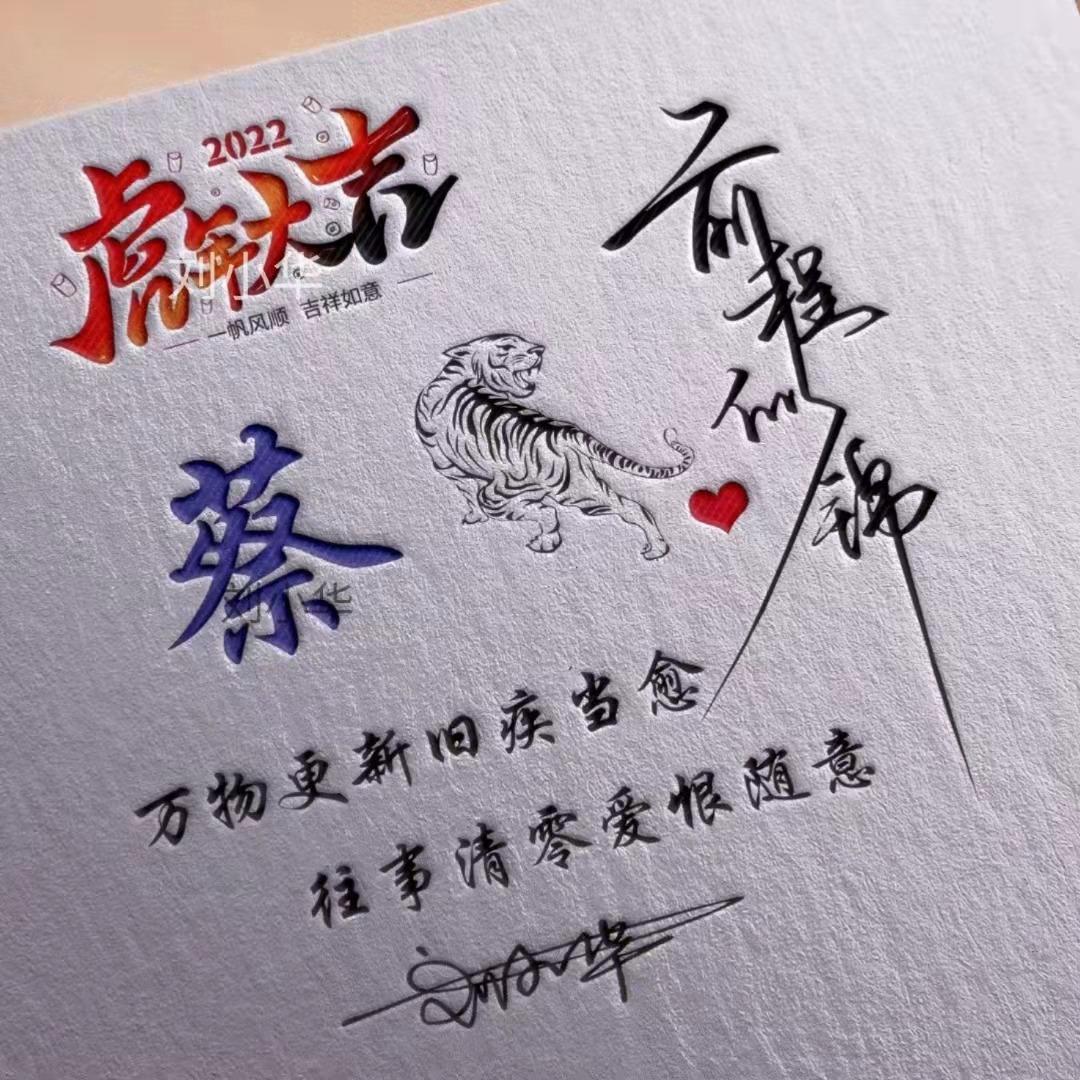 2022
虎年大吉
一帆风顺 吉祥如意
刘小华
前程似锦
蔡
刘小华
万物更新旧疾当愈
往事清零爱恨随意
刘小华